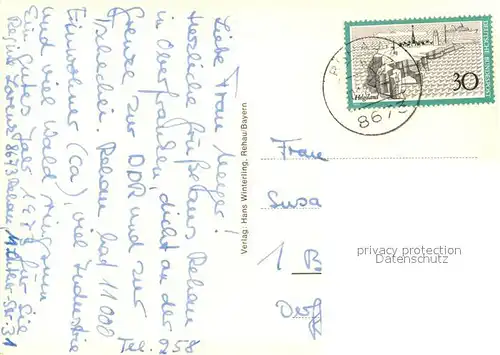 Liebe Frau Meyer!
Herzliche Grüße aus Rehau
in Oberfranken, dicht an der
Grenze zur DDR und zur
Tschechei. Rehau hat 11 000
Einwohner (ca), viel Industrie
und viel Wald ringsum
Ein gutes Jahr für Sie
Regina Lorenz 8673 Rehau
Tel. 258
Verlag: Hans Winterling, Rehau/Bayern
DEUTSCHE BUNDESPOST
Helgoland
30
8673
Frau
Susa
1 B
privacy protection
Datenschutz